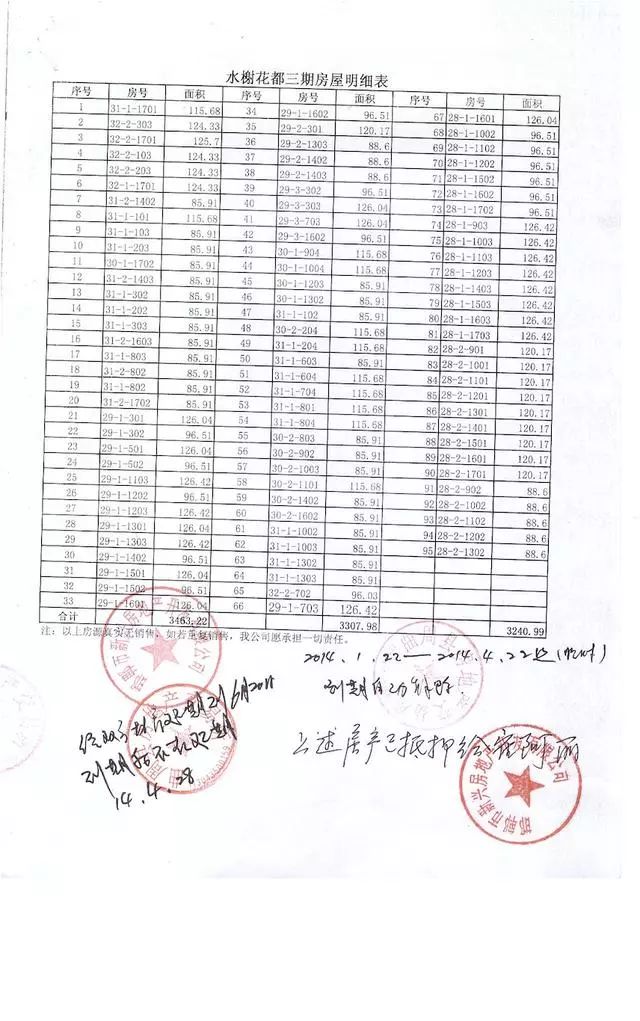 水榭花都三期房屋明细表
序号 房号 面积 序号 房号 面积 序号 房号 面积
1 31-1-1701 115.68 34 29-1-1602 96.51 67 28-1-1601 126.04
2 32-2-303 124.33 35 29-2-301 120.17 68 28-1-1002 96.51
3 32-2-1701 125.7 36 29-2-1303 88.6 69 28-1-1102 96.51
4 32-2-103 124.33 37 29-2-1402 88.6 70 28-1-1202 96.51
5 32-2-203 124.33 38 29-2-1403 88.6 71 28-1-1502 96.51
6 32-1-1701 124.33 39 29-3-302 96.51 72 28-1-1602 96.51
7 31-2-1402 85.91 40 29-3-303 126.04 73 28-1-1702 96.51
8 31-1-101 115.68 41 29-3-703 126.04 74 28-1-903 126.42
9 31-1-103 85.91 42 29-3-1602 96.51 75 28-1-1003 126.42
10 31-1-203 85.91 43 30-1-904 115.68 76 28-1-1103 126.42
11 30-1-1702 85.91 44 30-1-1004 115.68 77 28-1-1203 126.42
12 31-2-1403 85.91 45 30-1-1203 85.91 78 28-1-1403 126.42
13 31-1-302 85.91 46 30-1-1302 85.91 79 28-1-1503 126.42
14 31-1-202 85.91 47 31-1-102 85.91 80 28-1-1603 126.42
15 31-1-303 85.91 48 30-2-204 115.68 81 28-1-1703 126.42
16 31-2-1603 85.91 49 31-1-204 115.68 82 28-2-901 120.17
17 31-1-803 85.91 50 31-1-603 85.91 83 28-2-1001 120.17
18 31-2-802 85.91 51 31-1-604 115.68 84 28-2-1101 120.17
19 31-1-802 85.91 52 31-1-704 115.68 85 28-2-1201 120.17
20 31-2-1702 85.91 53 31-1-801 115.68 86 28-2-1301 120.17
21 29-1-301 126.04 54 31-1-804 115.68 87 28-2-1401 120.17
22 29-1-302 96.51 55 30-2-803 85.91 88 28-2-1501 120.17
23 29-1-501 126.04 56 30-2-902 85.91 89 28-2-1601 120.17
24 29-1-502 96.51 57 30-2-1003 85.91 90 28-2-1701 120.17
25 29-1-1103 126.42 58 30-2-1101 115.68 91 28-2-902 88.6
26 29-1-1202 96.51 59 30-2-1402 85.91 92 28-2-1002 88.6
27 29-1-1203 126.42 60 30-2-1602 85.91 93 28-2-1102 88.6
28 29-1-1301 126.04 61 31-1-1002 85.91 94 28-2-1202 88.6
29 29-1-1303 126.42 62 31-1-1003 85.91 95 28-2-1302 88.6
30 29-1-1402 96.51 63 31-1-1303 85.91
31 29-1-1501 126.04 64 31-1-1303 85.91
32 29-1-1502 96.51 65 32-2-702 96.03
33 29-1-1601 126.04 66 29-1-703 126.42
合计 3463.22 3307.98 3240.99
注：以上房源真实无销售，如若重复销售，我公司愿承担一切责任。
2014.1.22—2014.4.22
到期自动解除
到期后不在延期
14.4.28
上述房产已抵押给
邯郸市新兴房地产